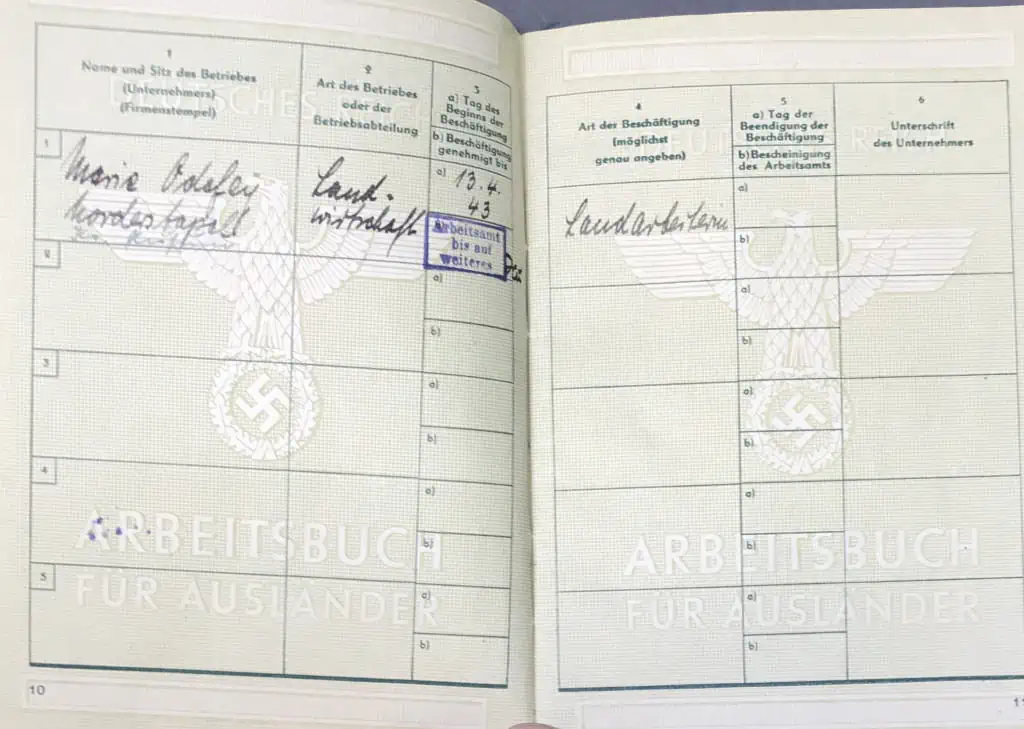 1
Name und Sitz des Betriebes
(Unternehmers)
(Firmenstempel)
2
Art des Betriebes
oder der
Betriebsabteilung
3
a) Tag des
Beginns der
Beschäftigung
b) Beschäftigung
genehmigt bis
1
Marie
Land-
wirtschaft
a) 13.4.
43
Arbeitsamt
bis auf
weiteres
2
a)
b)
3
a)
b)
4
a)
b)
5
a)
b)
DEUTSCHES REICH
ARBEITSBUCH
FÜR AUSLÄNDER
10
4
Art der Beschäftigung
(möglichst
genau angeben)
5
a) Tag der
Beendigung der
Beschäftigung
b) Bescheinigung
des Arbeitsamts
6
Unterschrift
des Unternehmers
Landarbeiterin
a)
b)
a)
b)
a)
b)
a)
b)
a)
b)
ARBEITSBUCH
FÜR AUSLÄNDER
11